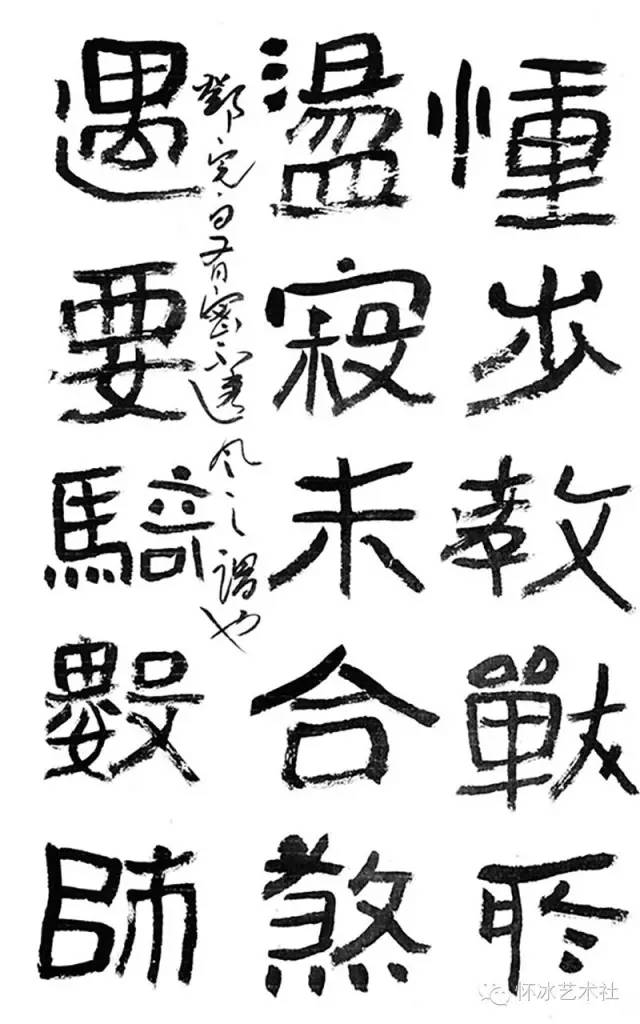 步教戰聆
盪寂未合煞
遇要騎數師
鄧完白有密不透风之謂也
怀冰艺术社